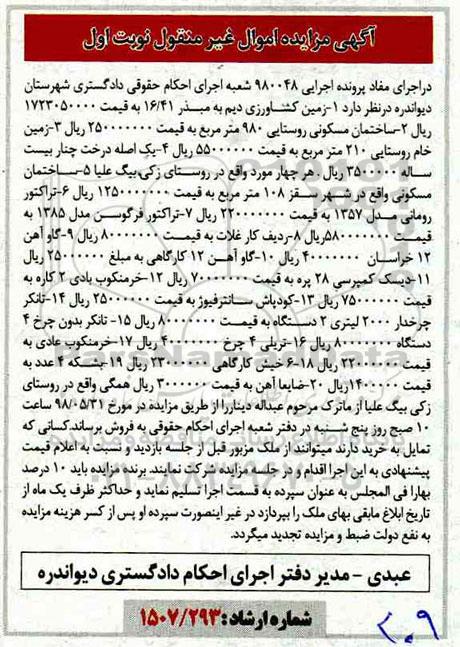 آگهی مزایده اموال غیر منقول نوبت اول
دراجرای مفاد پرونده اجرایی ۹۸۰۰۴۸ شعبه اجرای احکام حقوقی دادگستری شهرستان
دیواندره درنظر دارد ۱-زمین کشاورزی دیم به مبذر ۱۶/۴۱ به قیمت ۱۷۲۳۰۵۰۰۰۰
ریال ۲-ساختمان مسکونی روستایی ۹۸۰ متر مربع به قیمت ۲۵۰۰۰۰۰۰۰ ریال ۳-زمین
خام روستایی ۲۱۰ متر مربع به قیمت ۵۵۰۰۰۰۰۰ ریال ۴-یک اصله درخت چنار بیست
ساله ۳۵۰۰۰۰۰ ریال. هر چهار مورد واقع در روستای زکی بیگ علیا ۵-ساختمان
مسکونی واقع در شهر سقز ۱۰۸ متر مربع به قیمت ۱۲۵۰۰۰۰۰۰۰ ریال ۶-تراکتور
رومانی مدل ۱۳۵۷ به قیمت ۲۲۰۰۰۰۰۰۰ ریال ۷-تراکتور فرگوسن مدل ۱۳۸۵ به
قیمت ۵۸۰۰۰۰۰۰۰ریال ۸-ردیف کار غلات به قیمت ۸۰۰۰۰۰۰۰ ریال ۹-گاو آهن
۱۲ خراسان ۴۰۰۰۰۰۰۰ ریال ۱۰-گاو آهن ۱۲ کارگاهی به مبلغ ۲۵۰۰۰۰۰۰ ریال
۱۱-دیسک کمپرسی ۲۸ پره به قیمت ۷۰۰۰۰۰۰۰ ریال ۱۲-خرمنکوب بادی ۲ کاره به
قیمت ۷۵۰۰۰۰۰۰ ریال ۱۳-کودپاش سانترفیوژ به قیمت ۲۵۰۰۰۰۰۰ ریال ۱۴-تانکر
چرخدار ۲۰۰۰ لیتری ۲ دستگاه به قیمت ۸۰۰۰۰۰۰۰ ریال ۱۵- تانکر بدون چرخ ۴
دستگاه ۸۰۰۰۰۰۰۰ ریال ۱۶-تریلی ۴ چرخ ۴۰۰۰۰۰۰۰ ریال ۱۷-خرمنکوب عادی به
قیمت ۲۲۰۰۰۰۰۰ ریال ۱۸-۶ خیش کارگاهی ۲۳۰۰۰۰۰۰ ریال ۱۹-بشکه ۴ عدد به
قیمت ۱۴۰۰۰۰۰ریال ۲۰-ضایعا آهن به قیمت ۳۰۰۰۰۰۰ ریال همگی واقع در روستای
زکی بیگ علیا از ماترک مرحوم عبداله دینارر‌ا از طریق مزایده در مورخ ۹۸/۰۵/۳۱ ساعت
۱۰ صبح روز پنج شنبه در دفتر شعبه اجرای احکام حقوقی به فروش برساند.کسانی که
تمایل به خرید دارند میتوانند از ملک مزبور قبل از جلسه بازدید و نسبت به اعلام قیمت
پیشنهادی به این اجرا اقدام و در جلسه مزایده شرکت نمایند. برنده مزایده باید ۱۰ درصد
بهارا فی المجلس به عنوان سپرده به قسمت اجرا تسلیم نماید و حداکثر ظرف یک ماه از
تاریخ ابلاغ مابقی بهای ملک را بپردازد در غیر اینصورت سپرده او پس از کسر هزینه مزایده
به نفع دولت ضبط و مزایده تجدید میگردد.
عبدی - مدیر دفتر اجرای احکام دادگستری دیواندره
شماره ارشاد: ۱۵۰۷/۲۹۳
۲۰۹